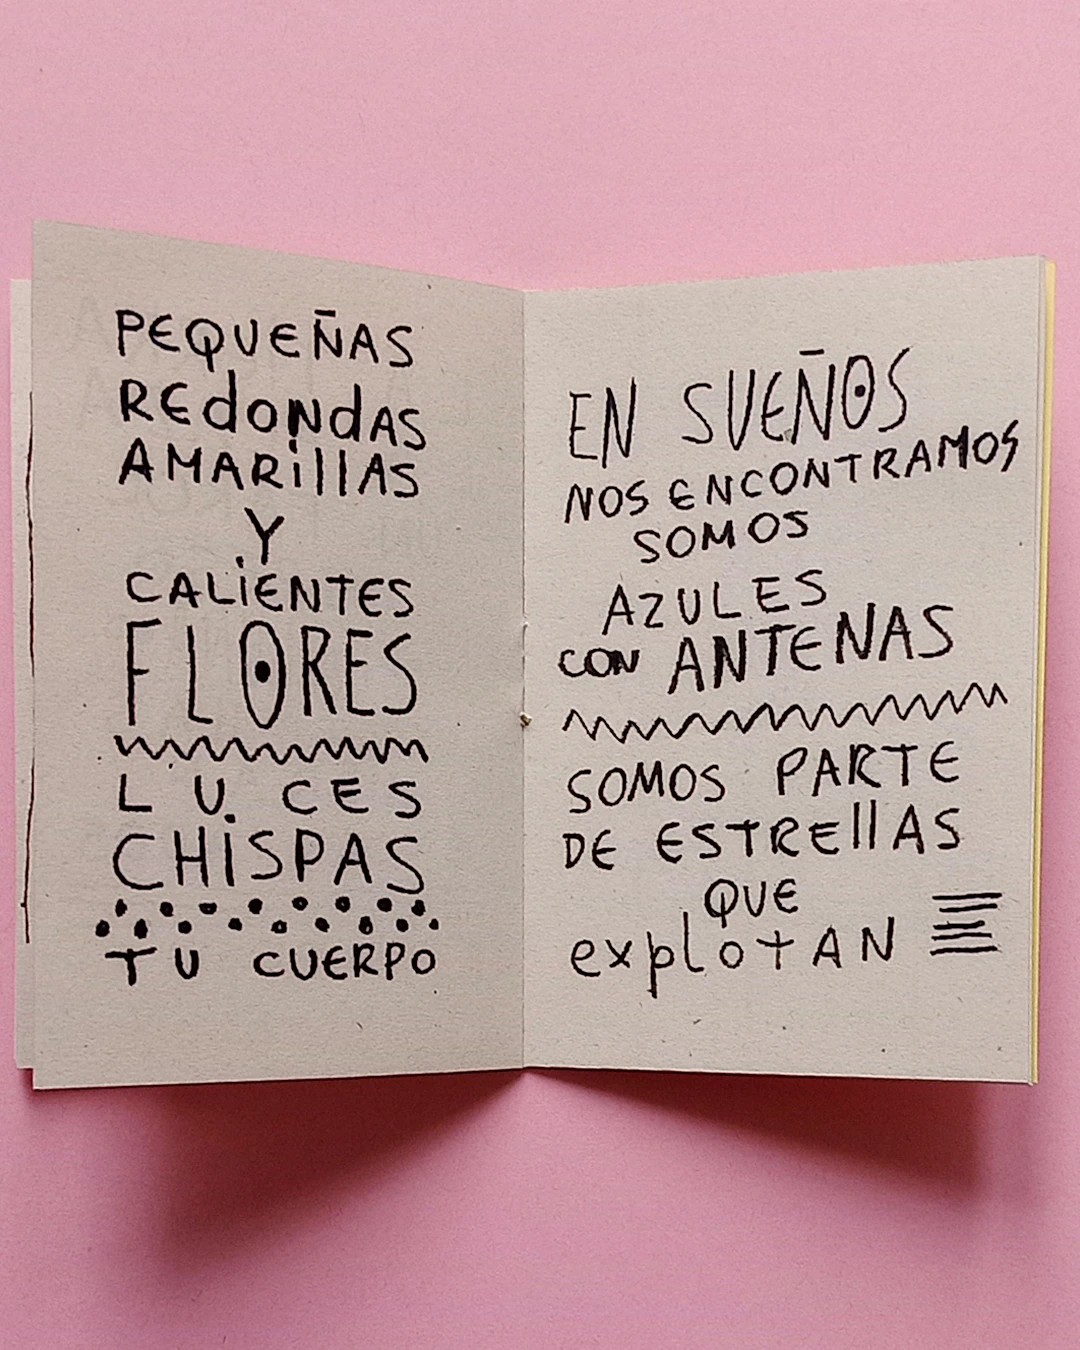 PEQUEÑAS
REdoNdAS
AMARillAS
Y
CALiENTES
FLORES
LUCES
CHiSPAS
TU CUERPO
EN SUEÑOS
NOS ENCONTRAMOS
SOMOS
AZULES
CON ANTENAS
SOMOS PARTE
DE ESTREllAS
QUE
explotAN